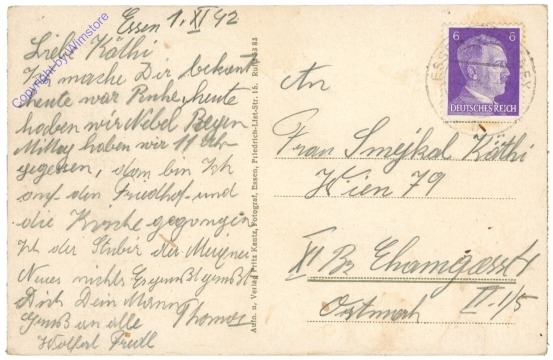 Essen 1. XI 42
Liebe Käthi
Ich mache Dir bekannt
heute war Ruhe, heute
haben wir Nebel Regen
Mittag haben wir 11 Uhr
gegessen, dann bin Ich
auf den Friedhof und
die Kirche gegangen
Ist der Stuber der
Neues nichts
Dich Dein Mann
Gruß an alle Thomas
Copyright by Wimstore
Aufn. u. Verlag Fritz Kautz, Fotograf, Essen, Friedrich-List-Str. 15. Ruf
6 6
DEUTSCHES REICH
An
Frau Smejkal Käthi
Wien 79
XI Bz
Ostmark II. 1/5